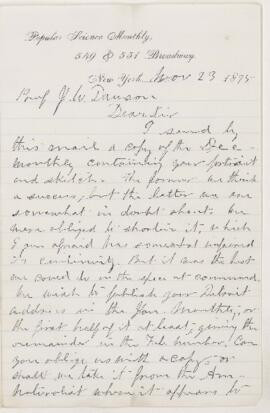 Popular Science Monthly,
549 & 551 Broadway,
New York, Nov 23 1875
Prof J. W. Dawson
Dear Sir
I send by
this mail a copy of the Dec
monthly containing your portrait
and sketch. The former we think
a success, but the latter we are
somewhat in doubt about. We
were obliged to shorten it, which
I am afraid has somewhat impaired
its continuity. But it was the best
we could do in the space at command.
We wish to publish your Detroit
address in the Jan. Monthly, or
the first half of it at least, giving the
remainder in the Feb. number. Can
you oblige us with a copy or
shall we take it from the Am
Naturalist when it appears to